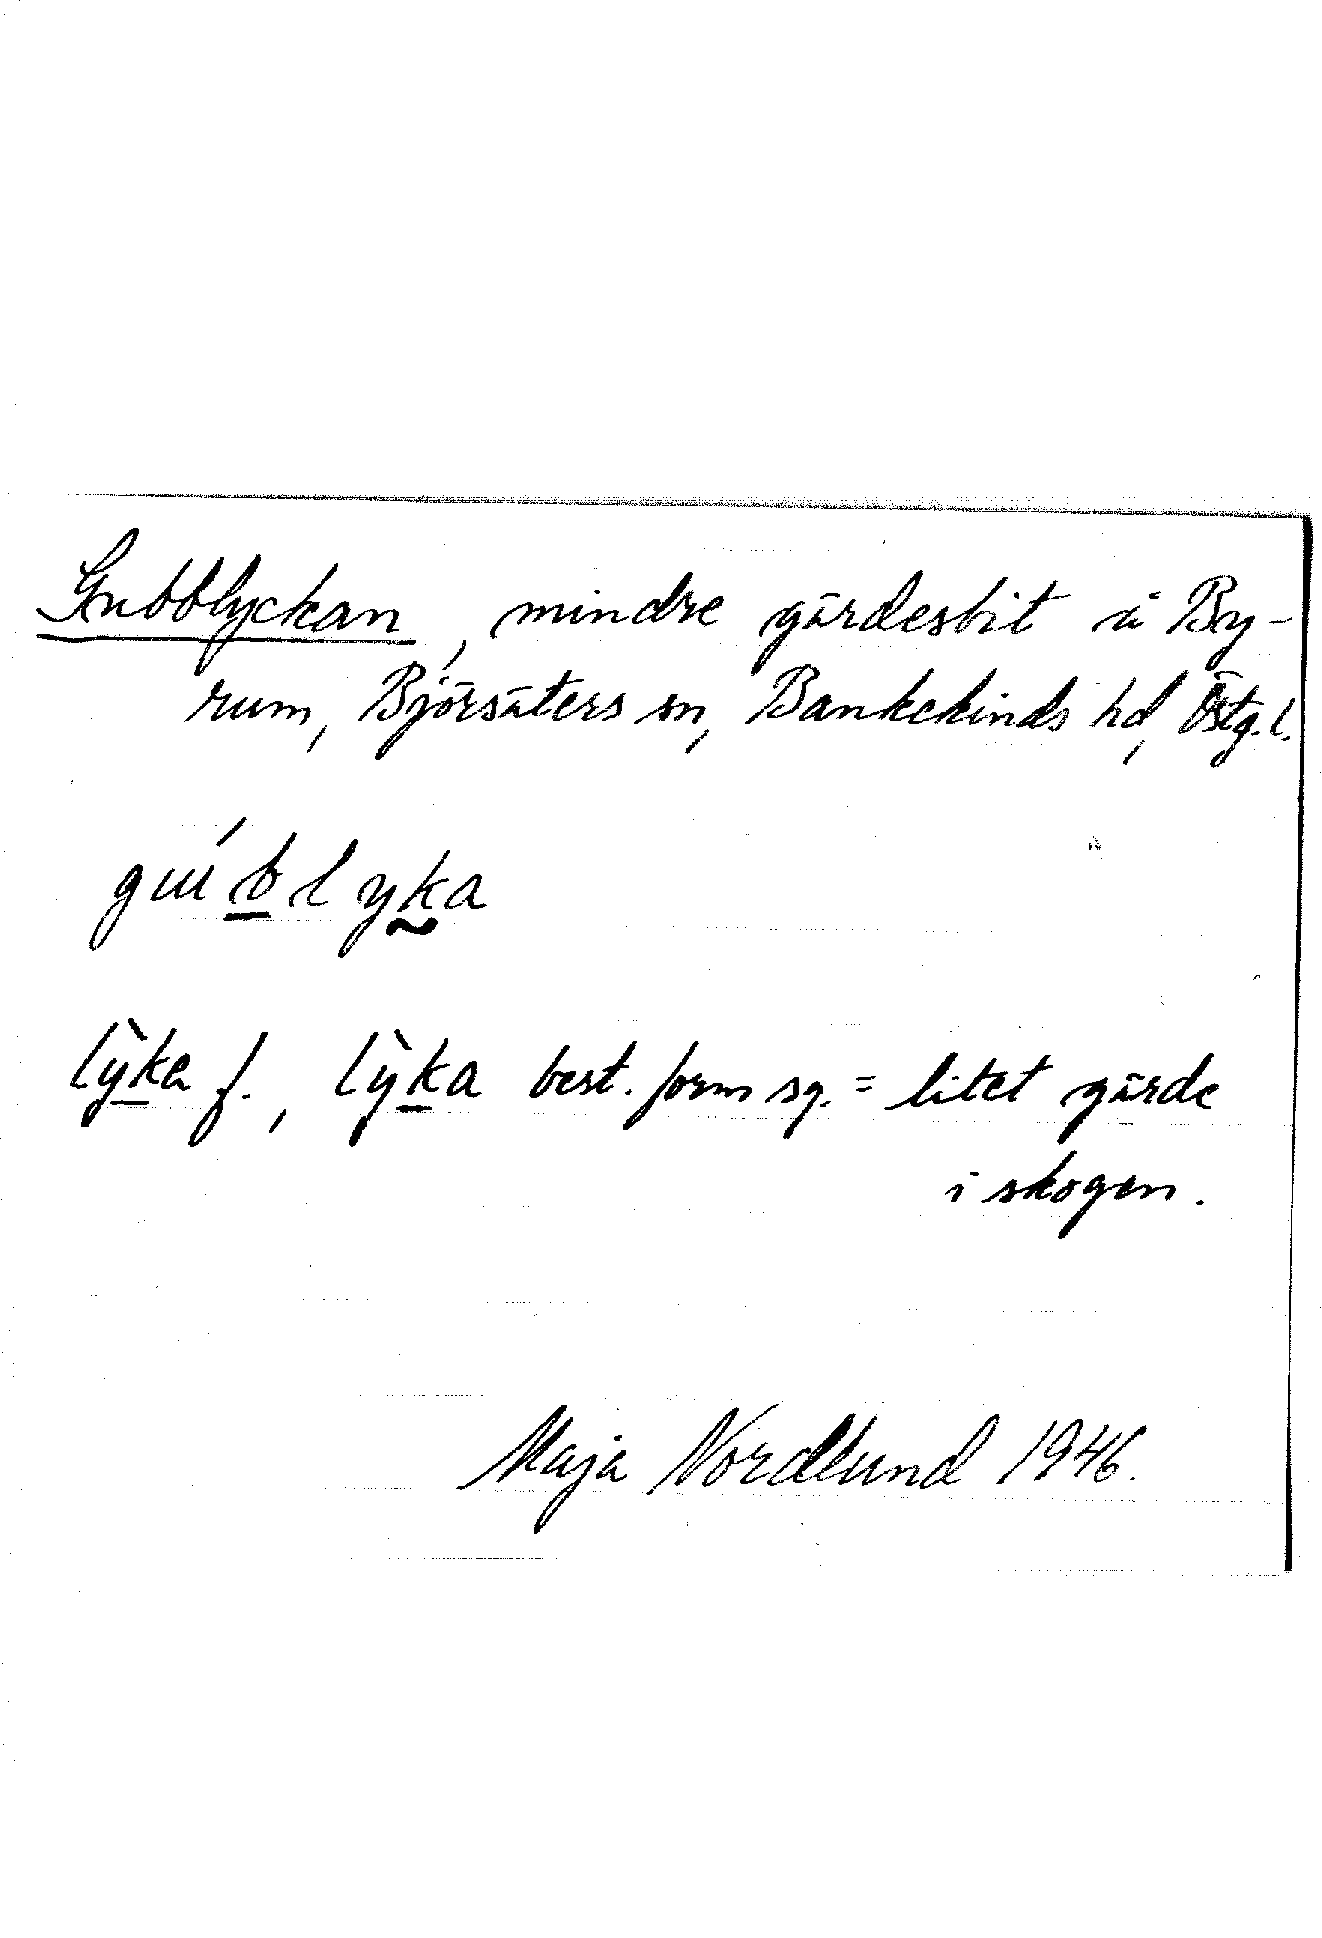 Gubblyckan, mindre gärdesbit å By-
rum, Björsäters sn, Bankekinds hd, Östg. l.
gu̍b̲lyk̰a
lỳk̲a f., lỳk̲a best. form sg. = litet gärde
i skogen.
Maja Nordlund 1946.